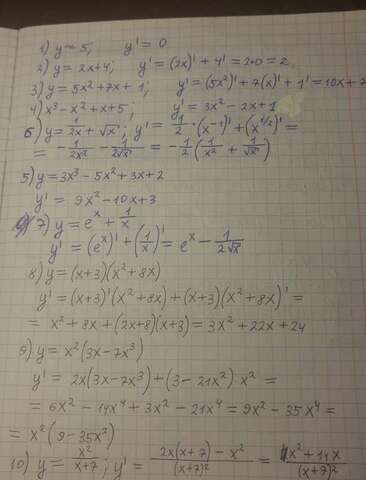 1) y = 5; y' = 0
2) y = 2x+4; y' = (2x)' + 4' = 2+0 = 2
3) y = 5x² + 7x + 1; y' = (5x²)' + 7(x)' + 1' = 10x + 7
4) x³ - x² + x + 5; y' = 3x² - 2x + 1
6) y = 1/2x + √x; y' = 1/2 · (x⁻¹)' + (x^1/2)' =
= - 1/2x² - 1/2√x = - 1/2 (1/x² + 1/√x)
5) y = 3x³ - 5x² + 3x + 2
y' = 9x² - 10x + 3
7) y = eˣ + 1/x
y' = (eˣ)' + (1/x)' = eˣ - 1/2√x
8) y = (x+3)(x² + 8x)
y' = (x+3)'(x² + 8x) + (x+3)(x² + 8x)' =
= x² + 8x + (2x+8)(x+3) = 3x² + 22x + 24
9) y = x²(3x - 7x³)
y' = 2x(3x - 7x³) + (3 - 21x²) · x² =
= 6x² - 14x⁴ + 3x² - 21x⁴ = 9x² - 35x⁴ =
= x²(9 - 35x²)
10) y = x²/x+7; y' = 2x(x+7) - x²/(x+7)² = x² + 14x/(x+7)²